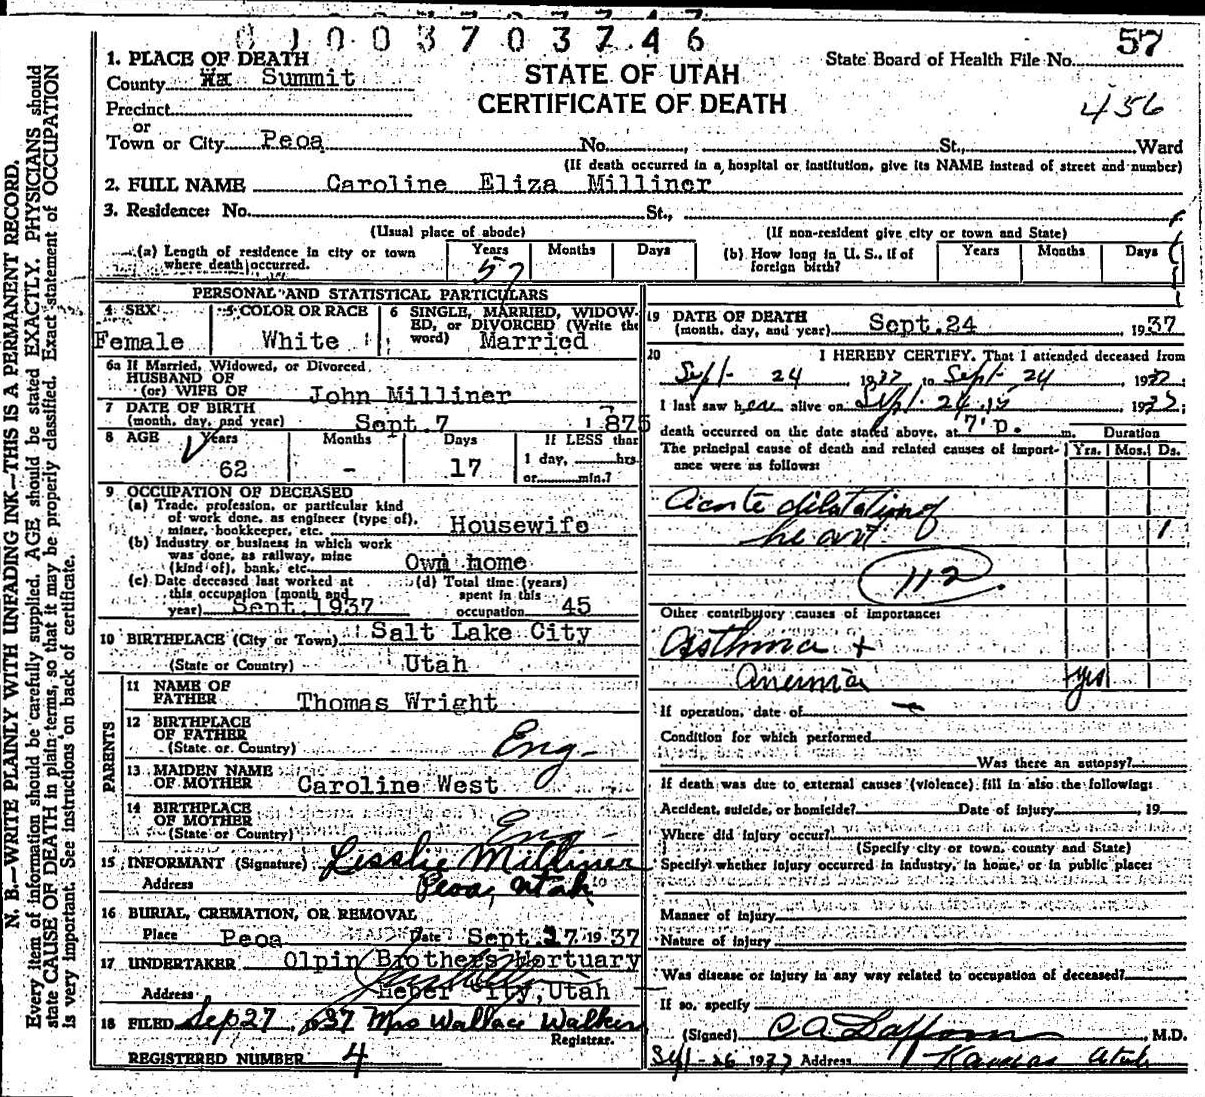 0 1 0 0 3 7 0 3 7 4 6
57
1. PLACE OF DEATH
State Board of Health File No.
County Wa Summit
STATE OF UTAH
Precinct
CERTIFICATE OF DEATH
456
or
Town or City Peoa No. , St., Ward
(If death occurred in a hospital or institution, give its NAME instead of street and number)
2. FULL NAME Caroline Eliza Milliner
3. Residence: No. St.,
(Usual place of abode) (If non-resident give city or town and State)
(a) Length of residence in city or town where death occurred. Years 57 Months Days
(b) How long in U. S., if of foreign birth? Years Months Days
PERSONAL AND STATISTICAL PARTICULARS
4 SEX Female
5 COLOR OR RACE White
6 SINGLE, MARRIED, WIDOWED, or DIVORCED (Write the word) Married
6a If Married, Widowed, or Divorced
HUSBAND OF
(or) WIFE OF John Milliner
7 DATE OF BIRTH
(month, day, and year) Sept. 7 1875
8 AGE Years 62 Months - Days 17 If LESS than 1 day, hrs. or min.?
9 OCCUPATION OF DECEASED
(a) Trade, profession, or particular kind
of work done, as engineer (type of),
miner, bookkeeper, etc. Housewife
(b) Industry or business in which work
was done, as railway, mine
(kind of), bank, etc. Own home
(c) Date deceased last worked at
this occupation (month and
year) Sept. 1937
(d) Total time (years)
spent in this
occupation 45
10 BIRTHPLACE (City or Town) Salt Lake City
(State or Country) Utah
PARENTS
11 NAME OF
FATHER Thomas Wright
12 BIRTHPLACE
OF FATHER
(State or Country) Eng-
13 MAIDEN NAME
OF MOTHER Caroline West
14 BIRTHPLACE
OF MOTHER
(State or Country) Eng-
15 INFORMANT (Signature) Lesslie Milliner
Address Peoa, Utah
16 BURIAL, CREMATION, OR REMOVAL
Place Peoa Date Sept. 27 1937
17 UNDERTAKER Olpin Brothers Mortuary
Address Heber City, Utah
18 FILED Sep 27, 37 Mrs Wallace Walker
Registrar.
REGISTERED NUMBER 4
19 DATE OF DEATH
(month, day, and year) Sept. 24 1937
20 I HEREBY CERTIFY, That I attended deceased from
Sept- 24 1937 to Sept- 24 1937;
I last saw her alive on Sept 24 1937;
death occurred on the date stated above, at 7 P. m. Duration
The principal cause of death and related causes of importance were as follows: Yrs. Mos. Ds.
Acute dilatation of
heart 1
112
Other contributory causes of importance:
Asthma +
Anemia yrs
If operation, date of -
Condition for which performed
Was there an autopsy?
If death was due to external causes (violence) fill in also the following:
Accident, suicide, or homicide? Date of injury , 19
Where did injury occur?
(Specify city or town, county and State)
Specify whether injury occurred in industry, in home, or in public place:
Manner of injury
Nature of injury
Was disease or injury in any way related to occupation of deceased?
If so, specify
(Signed) , M.D.
Sept-26 1937 Address Kamas Utah
N. B.—WRITE PLAINLY WITH UNFADING INK—THIS IS A PERMANENT RECORD.
Every item of information should be carefully supplied. AGE should be stated EXACTLY. PHYSICIANS should
state CAUSE OF DEATH in plain terms, so that it may be properly classified. Exact statement of OCCUPATION
is very important. See instructions on back of certificate.